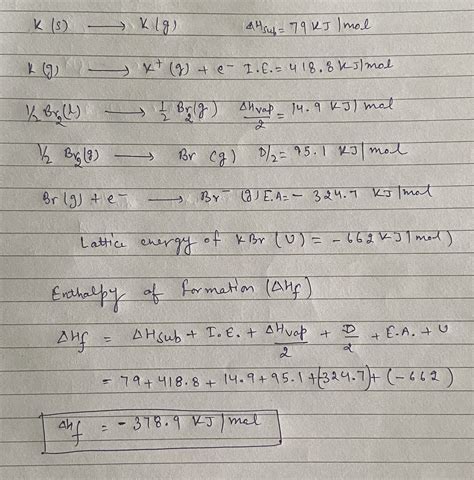 K(s) ⟶ K(g) ΔHsub = 79 KJ/mol
K(g) ⟶ K⁺(g) + e⁻ I.E. = 418.8 KJ/mol
1/2 Br₂(l) ⟶ 1/2 Br₂(g) ΔHvap/2 = 14.9 KJ/mol
1/2 Br₂(g) ⟶ Br(g) D/2 = 95.1 KJ/mol
Br(g) + e⁻ ⟶ Br⁻(g) E.A = - 324.7 KJ/mol
Lattice energy of KBr (U) = -662 KJ/mol)
Enthalpy of Formation (ΔHf)
ΔHf = ΔHsub + I.E. + ΔHvap/2 + D/2 + E.A. + U
= 79 + 418.8 + 14.9 + 95.1 + (-324.7) + (-662)
ΔHf = -378.9 KJ/mol